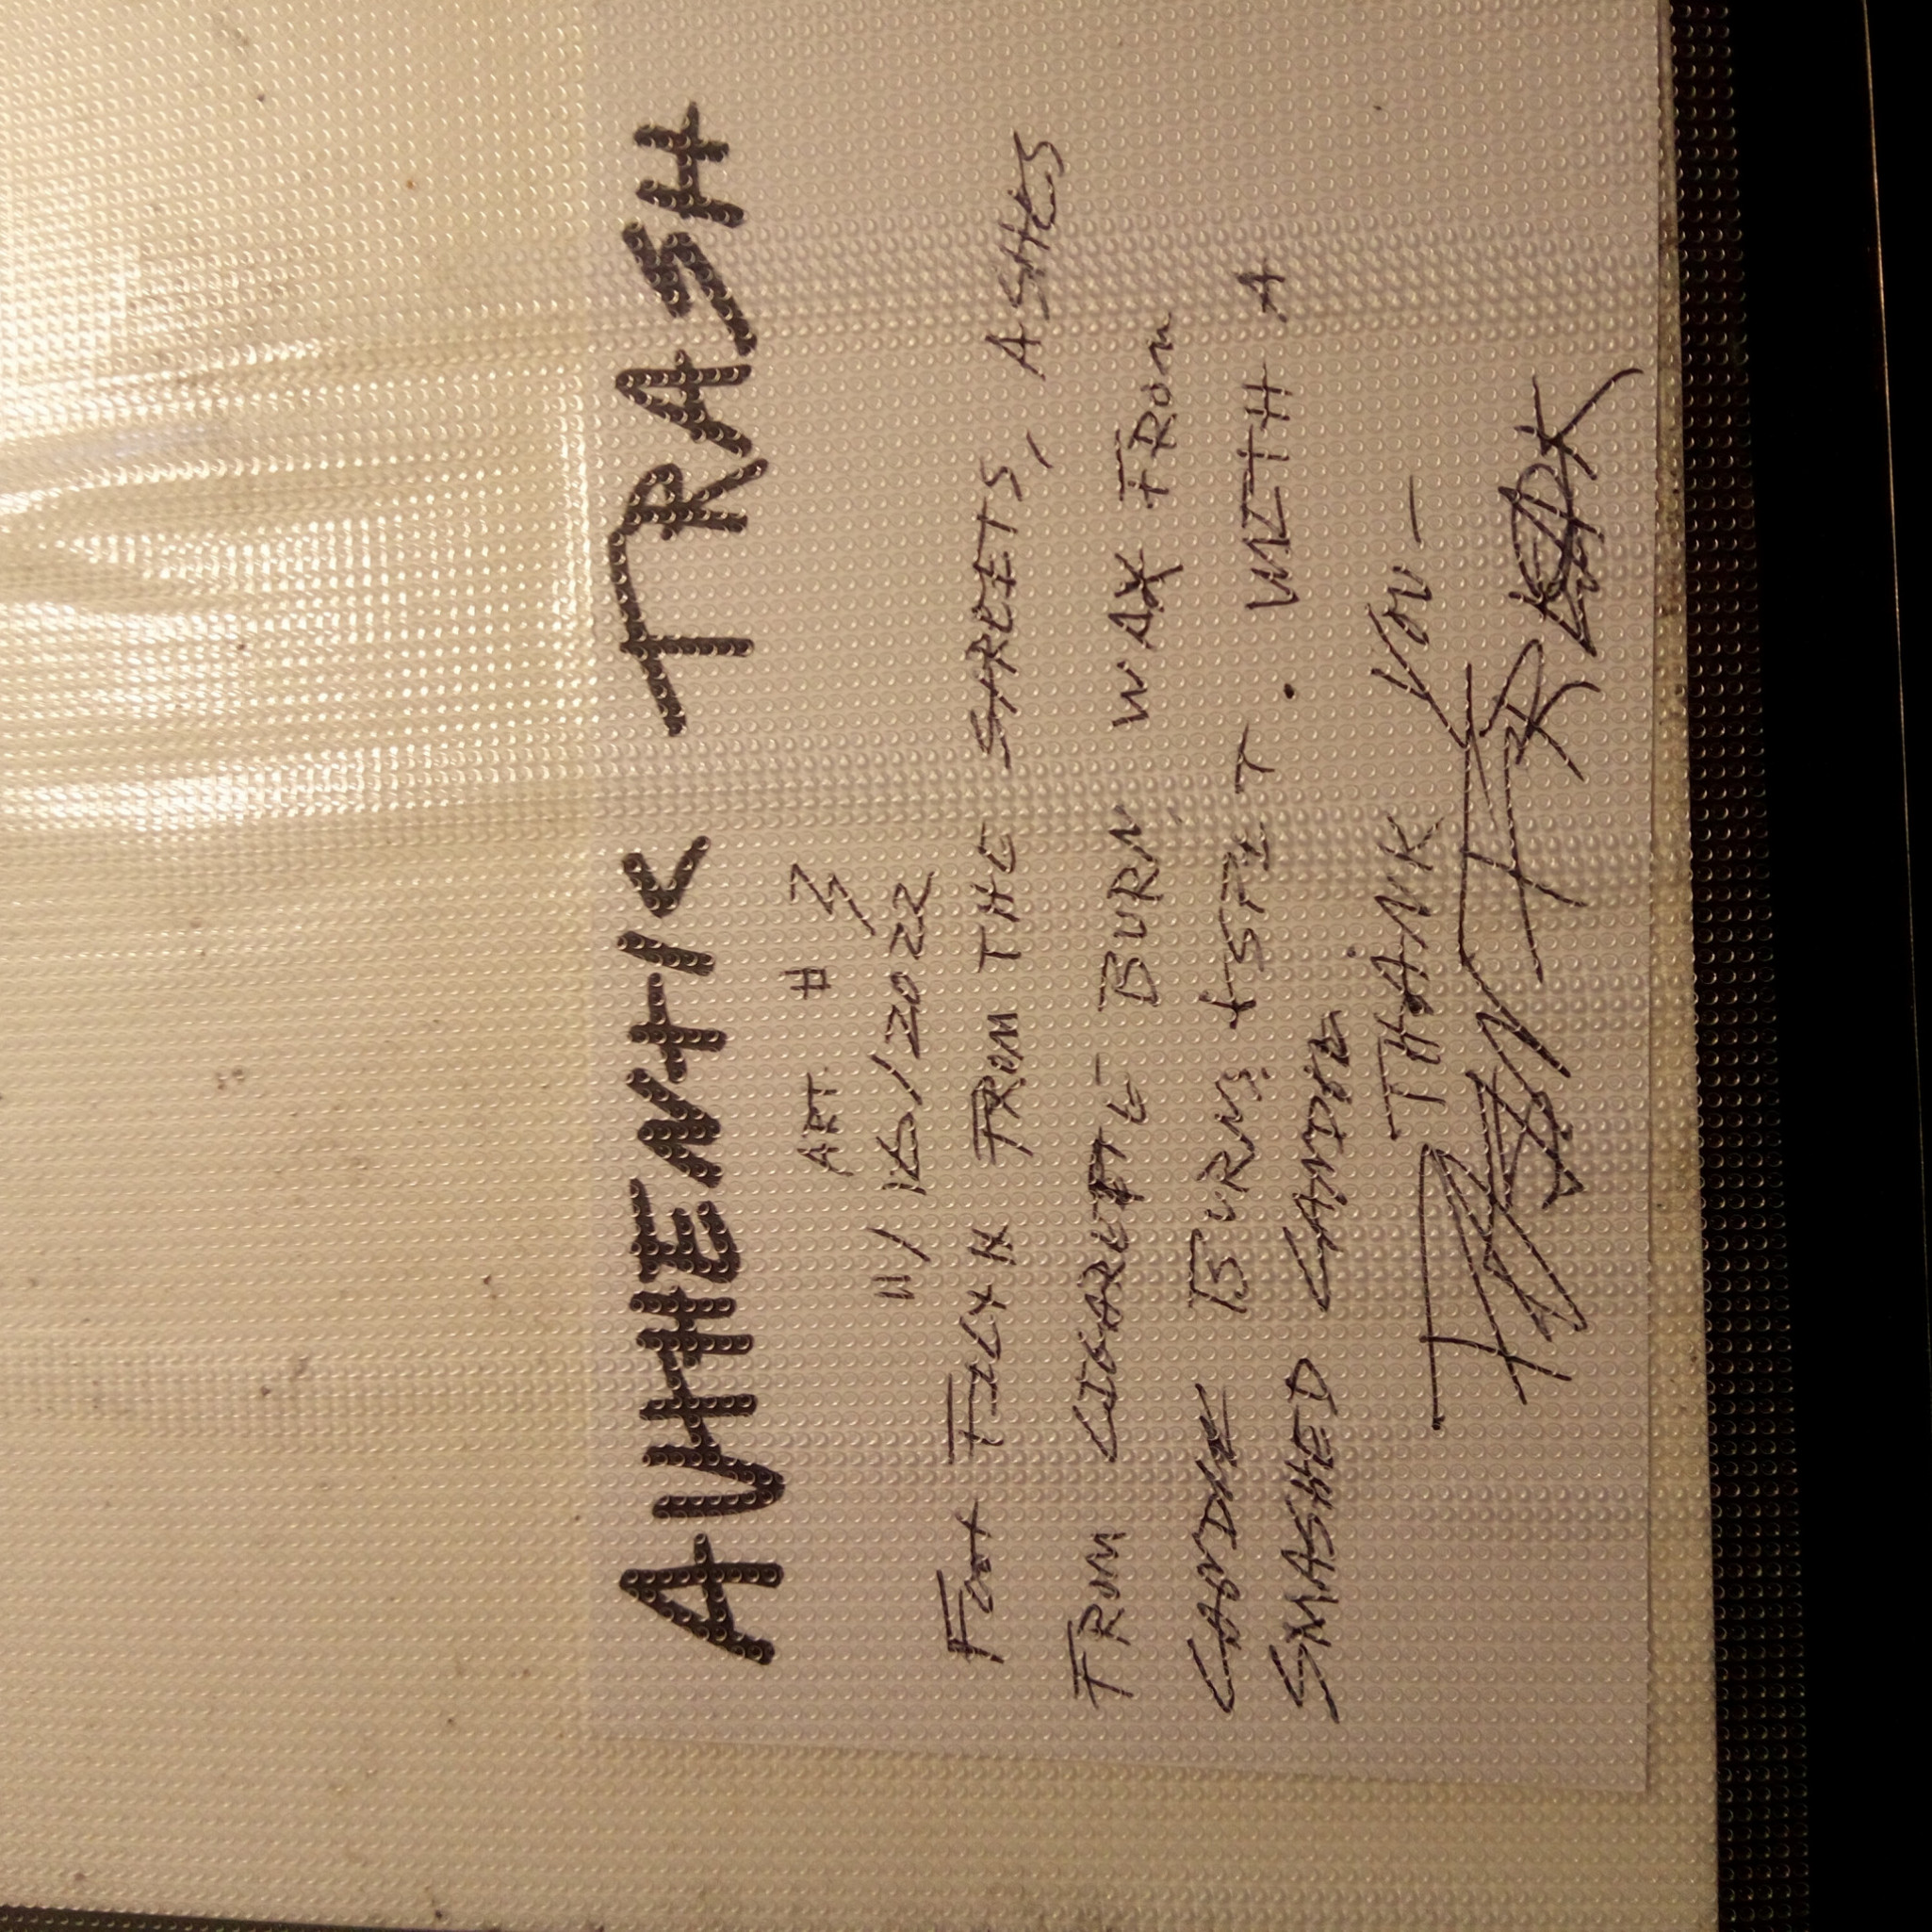 AUTHENTIC TRASH
ART # 3
11/16/2022
FOOT FILTH FROM THE STREETS, ASHES
FROM CIGARETTE BURN WAX FROM
CANDLE BURNS + SPIT. WITH A
SMASHED CANDLE
THANK YOU –